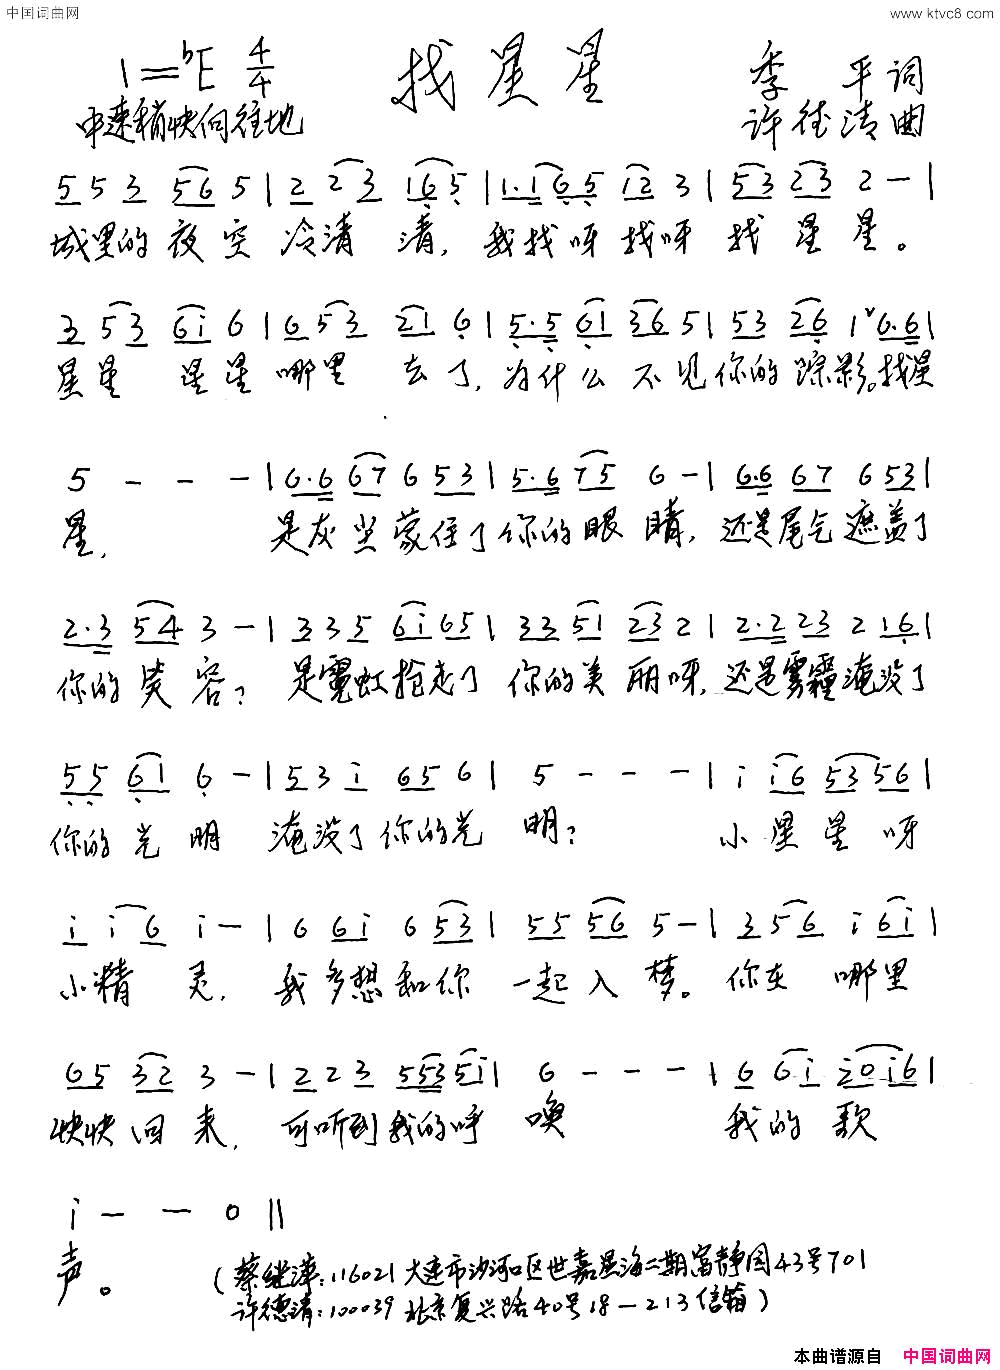 中国词曲网
www.ktvc8.com
1=♭E 4/4
找星星
季 平词
许德清曲
中速稍快向往地
5 5 3 5 6 5 | 2 2 3 1 6 5 | 1·1 6 5 1 2 3 | 5 3 2 3 2 - |
城里的夜空冷清清,我找呀找呀找星星。
3 5 3 6 i 6 | 6 5 3 2 1 6 | 5·5 6 1 3 6 5 | 5 3 2 6 1 ˅6·6 |
星星星星哪里去了,为什么不见你的踪影。找星
5 - - - | 6·6 6 7 6 5 3 | 5·6 7 5 6 - | 6·6 6 7 6 5 3 |
星,是灰尘蒙住了你的眼睛,还是尾气遮盖了
2·3 5 4 3 - | 3 3 5 6 i 6 5 | 3 3 5 1 2 3 2 | 2·2 2 3 2 1 6 |
你的笑容?是霓虹抢走了你的美丽呀,还是雾霾淹没了
5 5 6 1 6 - | 5 3 i 6 5 6 | 5 - - - | i i 6 5 3 5 6 |
你的光明淹没了你的光明?小星星呀
i i 6 i - | 6 6 i 6 5 3 | 5 5 5 6 5 - | 3 5 6 i 6 i |
小精灵,我多想和你一起入梦。你在哪里
6 5 3 2 3 - | 2 2 3 5 5 3 5 i | 6 - - - | 6 6 i 2 0 i 6 |
快快回来,可听到我的呼唤我的歌
i - - 0 ‖
声。
(蔡继萍:116021大连市沙河口区世嘉星海二期富静园43号701
许德清:100039北京复兴路40号18-213信箱)
本曲谱源自 中国词曲网